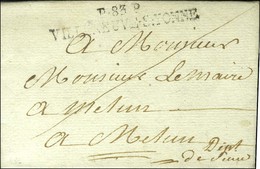 P. 83 P.
VILLENEUVE-S-YONNE
A Monsieur
Monsieur Lemaire
a melun
a Melun
Dépt
de Seine